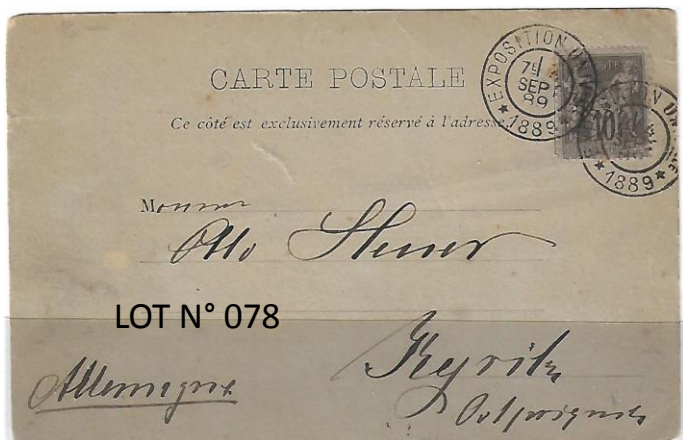 CARTE POSTALE
Ce côté est exclusivement réservé à l'adresse.
EXPOSITION UNIV
7E
SEPT
89
★ 1889 ★
10
★ 1889 ★
Monsieur
Otto
LOT N° 078
Allemagne
Kyritz
Ostprignitz